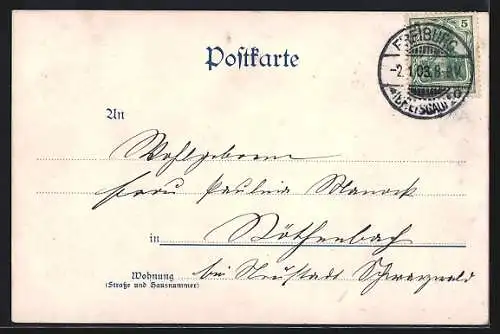 5
Postkarte
FREIBURG
-2.1.03.8-9V.
*(BREISGAU)*
An
Wohlgeboren
Frau Paulina Manock
in Röthenbach
Wohnung
(Straße und Hausnummer)
bei Neustadt Schwarzwald